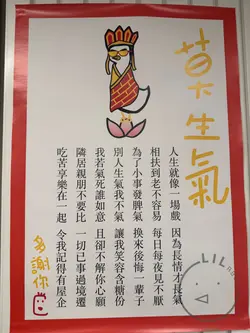 莫生氣
人生就像一場戲 因為長情才長氣
相扶到老不容易 每日每夜見不厭
為了小事發脾氣 換來後悔一輩子
別人生氣我不氣 讓我笑容含糖份
我若氣死誰如意 且卻不解你心願
隣居親朋不要比 一切已事過境遷
吃苦享樂在一起 令我記得有屋企
多謝你